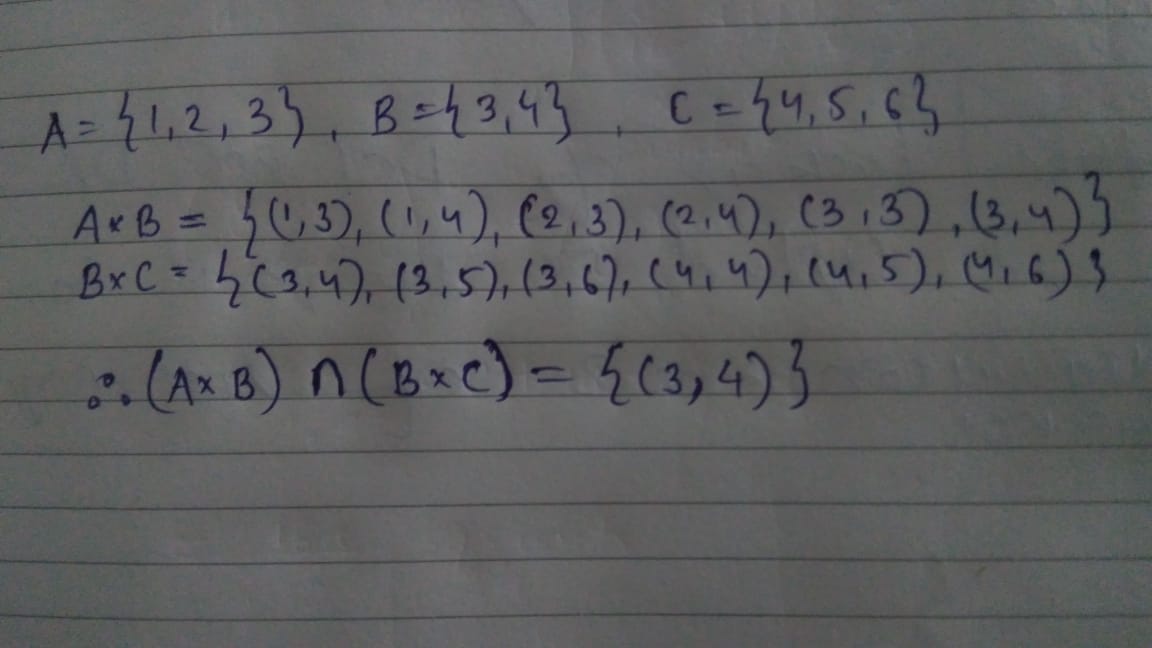 A = {1, 2, 3}, B = {3, 4}, C = {4, 5, 6}
A×B = {(1,3), (1,4), (2,3), (2,4), (3,3), (3,4)}
B×C = {(3,4), (3,5), (3,6), (4,4), (4,5), (4,6)}
∴ (A×B) ∩ (B×C) = {(3,4)}